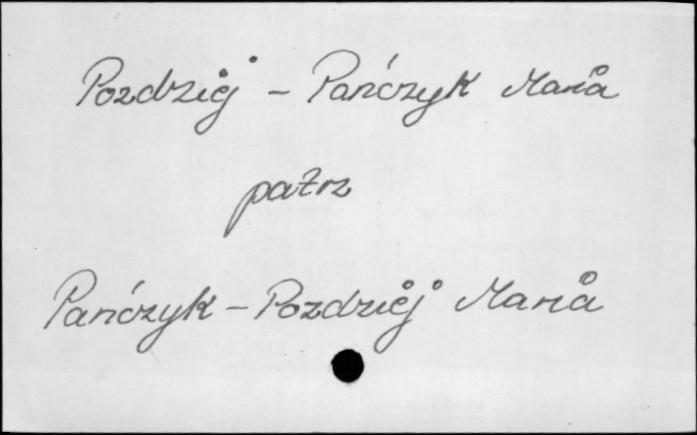 Pozdziej - Pańczyk Maria
patrz
Pańczyk - Pozdziej Maria